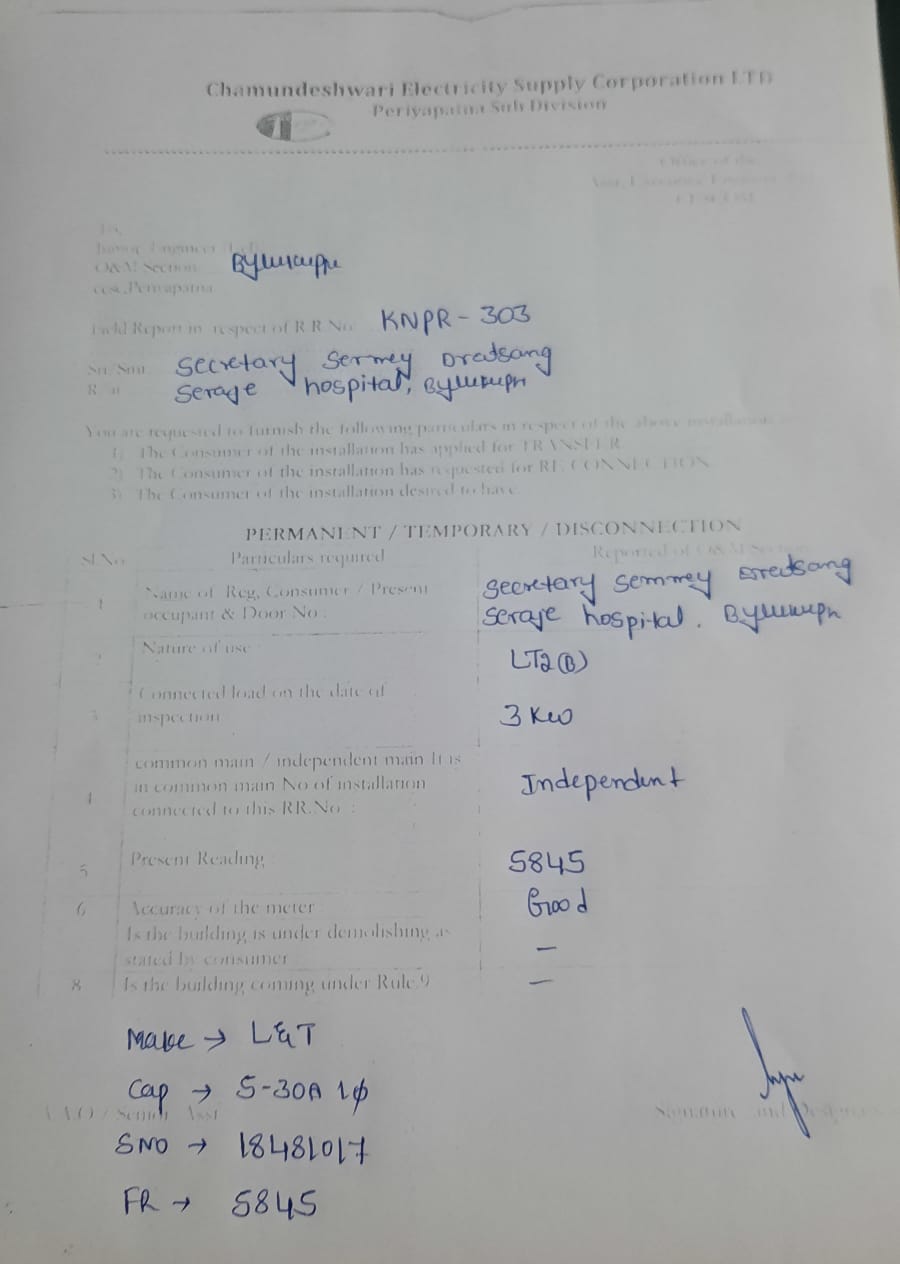 Chamundeshwari Electricity Supply Corporation LTD
Periyapatna Sub Division
Office of the
To,
Junior Engineer
O&M Section Bylukuppe
cesc,Periyapatna
Field Report in respect of R.R.No. KNPR - 303
Sri/Smt Secretary Sermey Dratsang
Seraje hospital, Bylukuppe
You are requested to furnish the following particulars in respect of the above installation
1) The Consumer of the installation has applied for TRANSFER
2) The Consumer of the installation has requested for RE CONNECTION
3) The Consumer of the installation desired to have
PERMANENT / TEMPORARY / DISCONNECTION
Sl.No Particulars required Reported of O&M Section
1 Name of Reg, Consumer / Present Secretary Sermey Dratsang
occupant & Door No. Seraje hospital. Bylukuppe
2 Nature of use LT2(B)
3 Connected load on the date of
inspection 3 Kw
4 common main / independent main It is
in common main No of installation Independent
connected to this RR.No :
5 Present Reading 5845
6 Accuracy of the meter Good
Is the building is under demolishing as
stated by consumer —
8 Is the building coming under Rule 9 —
Make → L&T
Cap → 5-30A 1φ
AAO / Senior Asst
Signature and
SNO → 18481017
FR → 5845